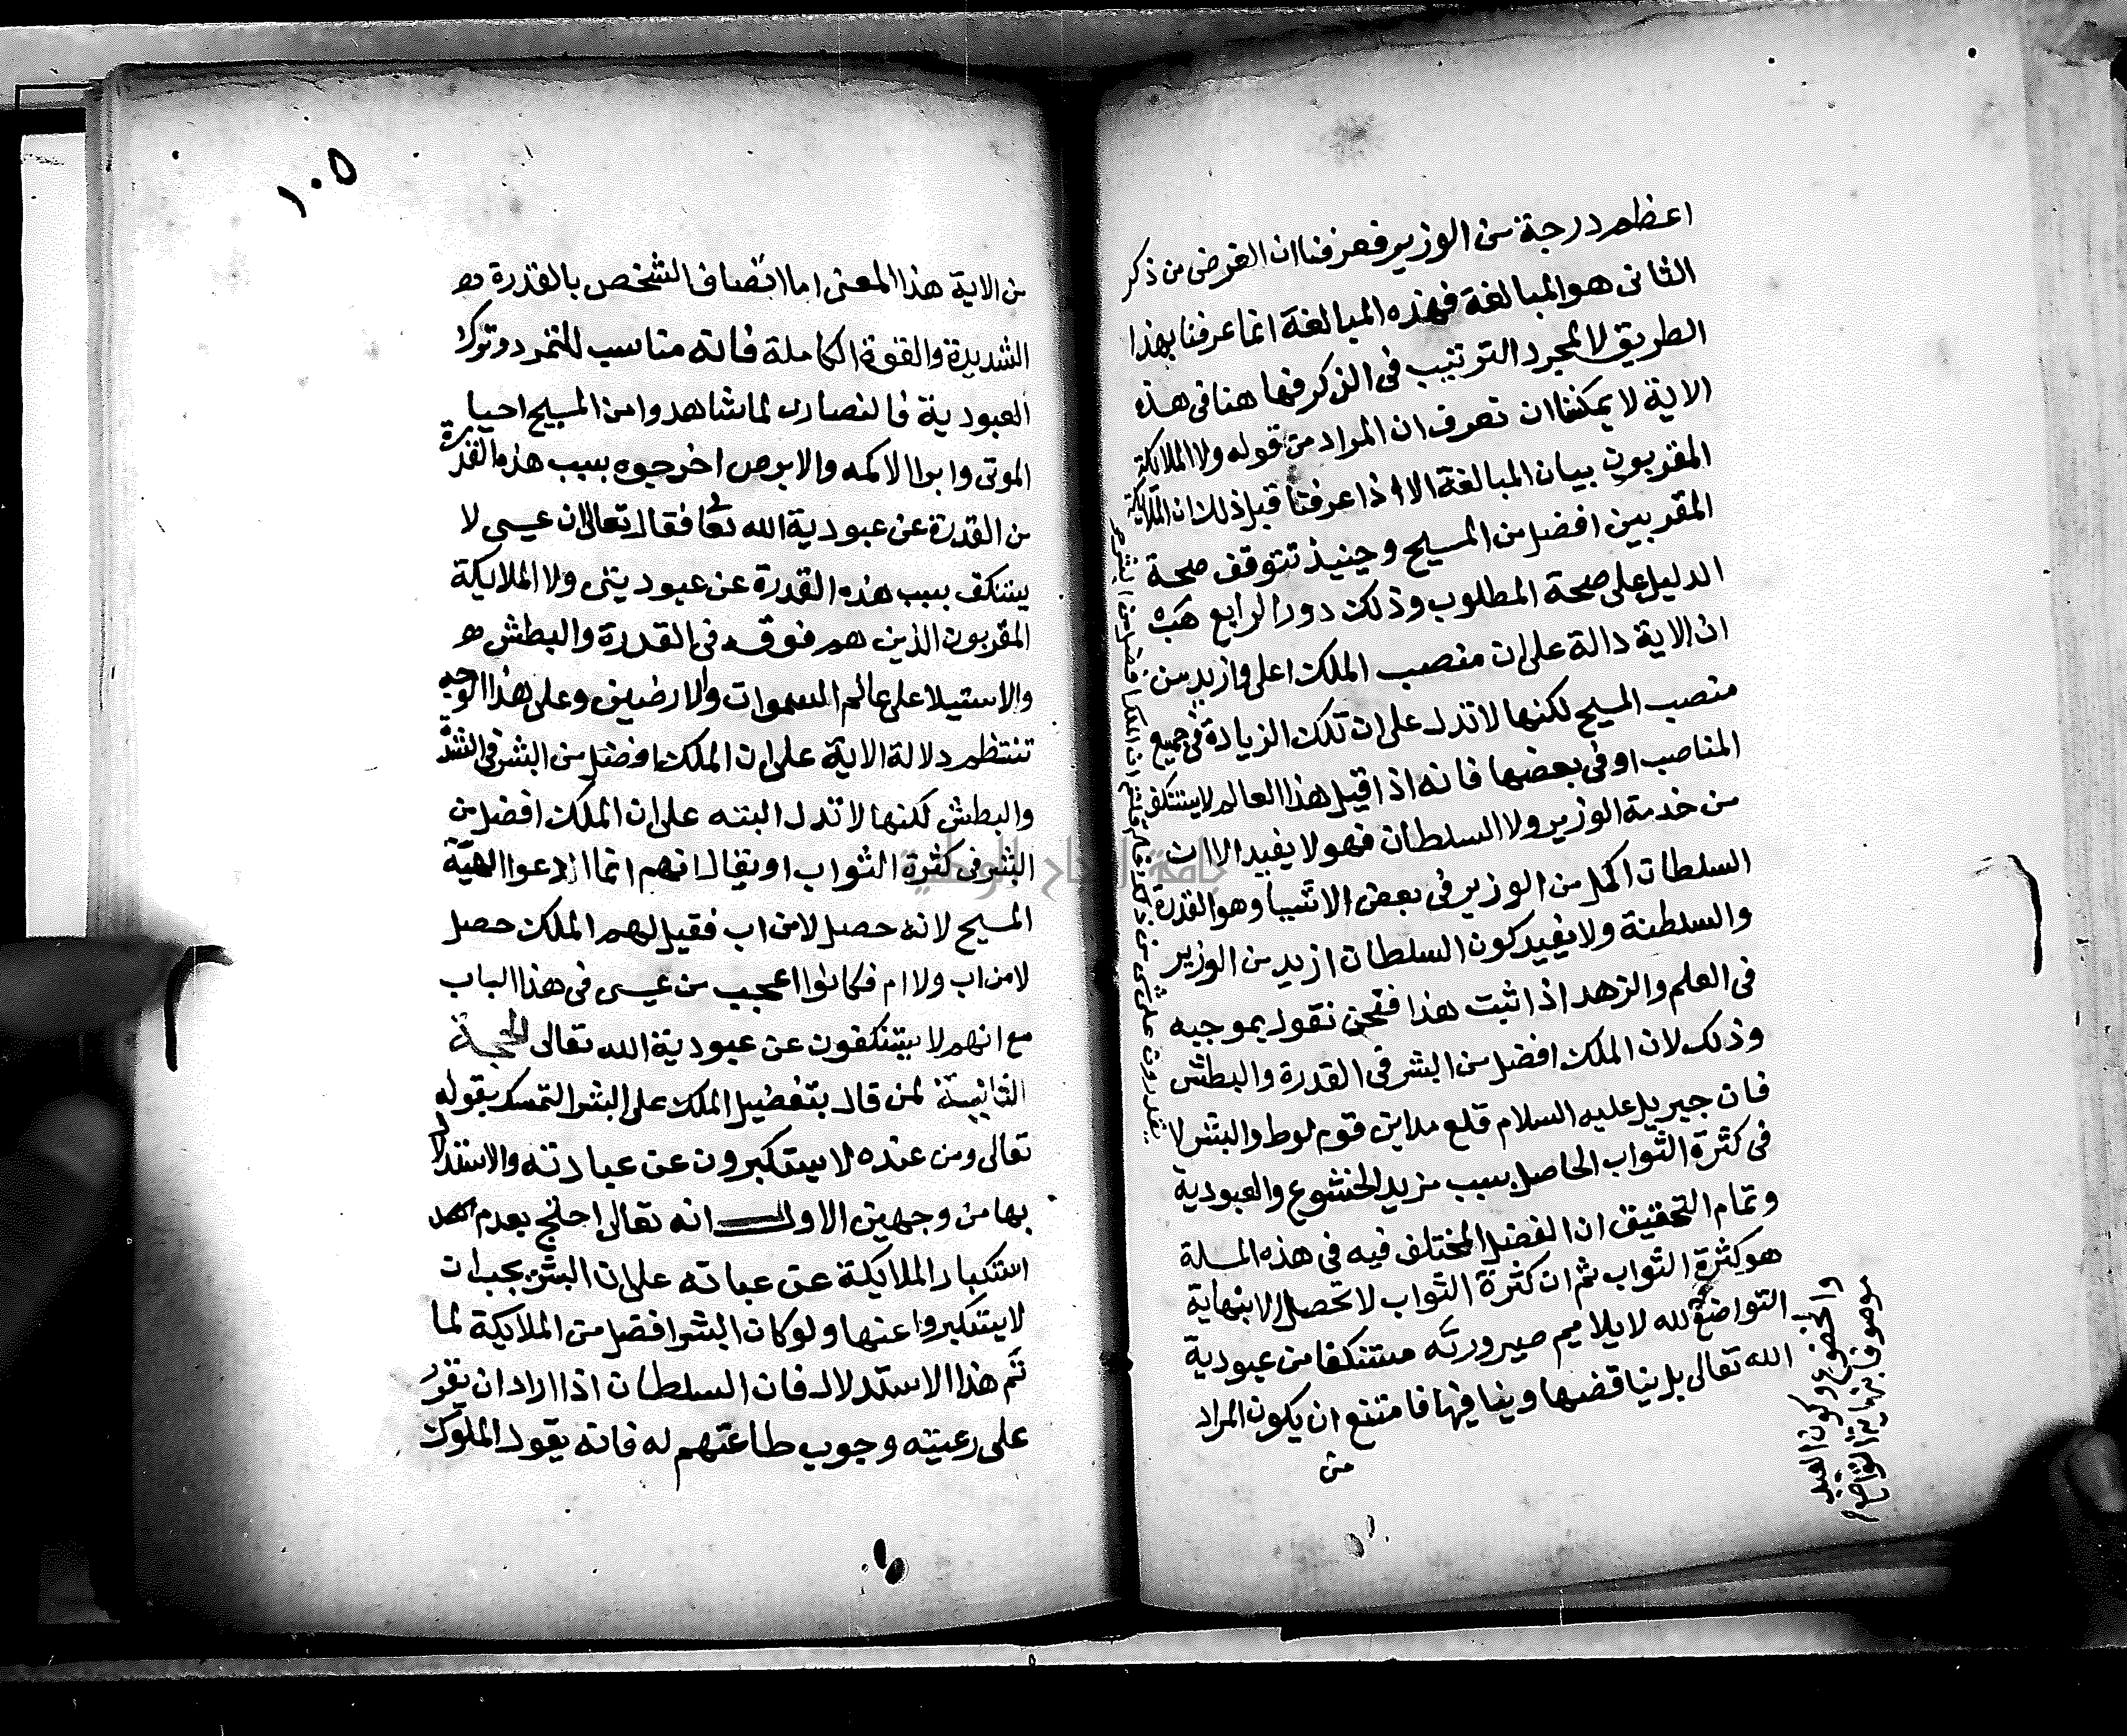 اعظم درجة من الوزير فعرفنا ان الغرض من ذكر
الثانى هو المبالغة فهذه المبالغة انما عرفنا بهذا
الطريق لا لمجرد الترتيب فى الذكر فها هنا فى هذه
الاية لا يمكننا ان نعرف ان المراد من قوله ولا الملايكة
المقربون بيان المبالغة الا اذا عرفنا قبل ذلك ان الملايكة
المقربين افضل من المسيح وحينيذ تتوقف صحة
الدليل على صحة المطلوب وذلك دور الرابع هب
ان الاية دالة على ان منصب الملك اعلى وازيد من
منصب المسيح لكنها لا تدل على ان تلك الزيادة فى جميع
المناصب او فى بعضها فانه اذا قيل هذا العالم لا يستنكف
من خدمة الوزير ولا السلطان فهو لا يفيد الا ان
السلطان اكمل من الوزير فى بعض الاشيا وهو القدرة
والسلطنة ولا يفيد كون السلطان ازيد من الوزير
فى العلم والزهد اذا ثبت هذا فنحن نقول بموجبه
وذلك لان الملك افضل من البشر فى القدرة والبطش
فان جبريل عليه السلام قلع مداين قوم لوط والبشر لا
يقدرون على شى من ذلك
فى كثرة الثواب الحاصل بسبب مزيد الخشوع والعبودية
وتمام التحقيق ان الفضل المختلف فيه فى هذه المسلة
هو كثرة الثواب ثم ان كثرة الثواب لا تحصل الا بنهاية
التواضع لله لا يلايم صيرورته مستنكفا من عبودية
والخضوع وكون العبد
موصوفا بنهاية التواضع
الله تعالى بل يناقضها وينافيها فامتنع ان يكون المراد
من
١٠٥
من الاية هذا المعنى اما اتصاف الشخص بالقدرة
الشديدة والقوة الكاملة فانه مناسب للتمرد وترك
العبودية فالنصارى لما شاهدوا من المسيح احيا
الموتى وابرا الاكمه والابرص اخرجوه بسبب هذه القدرة
من القدرة عن عبودية الله تعا فقال تعالى ان عيسى لا
يستنكف بسبب هذه القدرة عن عبوديتى ولا الملايكة
المقربون الذين هم فوقه فى القدرة والبطش
والاستيلا على عالم السموات والارضين وعلى هذا الوجه
تنتظم دلالة الاية على ان الملك افضل من البشر فى الشدة
والبطش لكنها لا تدل البتة على ان الملك افضل من
البشر فى كثرة الثواب او يقال انهم انما ادعوا الهية
المسيح لانه حصل لا من اب فقيل لهم الملك حصل
لا من اب ولا ام فكانوا اعجب من عيسى فى هذا الباب
مع انهم لا يستنكفون عن عبودية الله تعالى الحجة
الثانية لمن قال بتفضيل الملك على البشر التمسك بقوله
تعالى ومن عنده لا يستكبرون عن عبادته والاستدلال
بها من وجهين الاول انه تعالى احتج بعدم
استكبار الملايكة عن عباته على ان البشر يجب ان
لا يستكبروا عنها ولو كان البشر افضل من الملايكة لما
تم هذا الاستدلال فان السلطان اذا اراد ان يقرر
على رعيته وجوب طاعتهم له فانه يقول الملوك